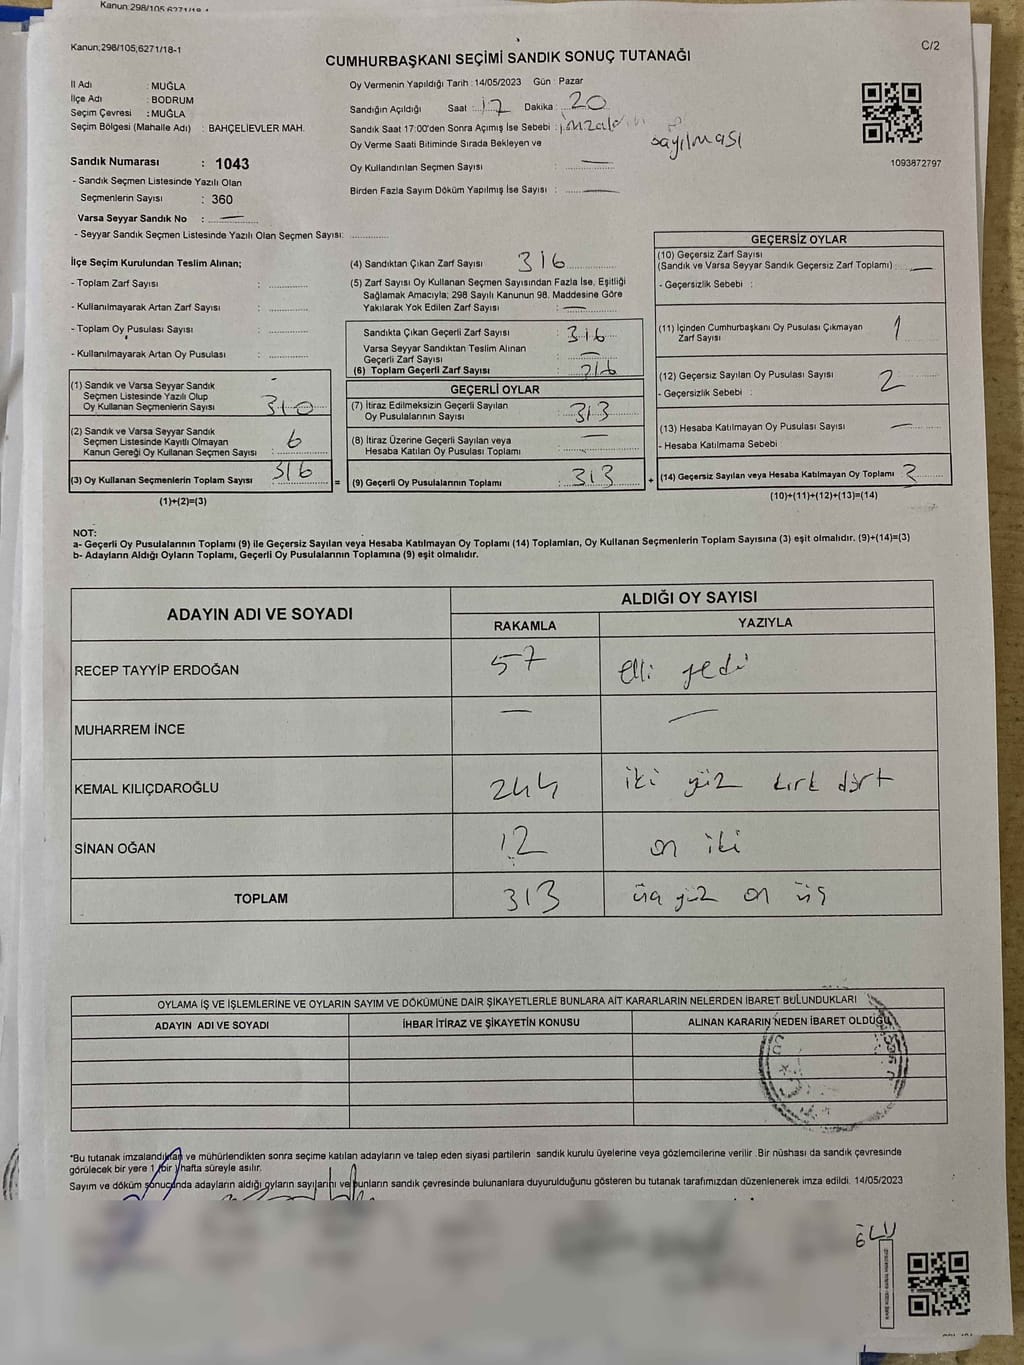 Kanun:298/105,6271/18-1
C/2
CUMHURBAŞKANI SEÇİMİ SANDIK SONUÇ TUTANAĞI
İl Adı : MUĞLA
İlçe Adı : BODRUM
Seçim Çevresi : MUĞLA
Seçim Bölgesi (Mahalle Adı) : BAHÇELİEVLER MAH.
Oy Vermenin Yapıldığı Tarih : 14/05/2023 Gün : Pazar
Sandığın Açıldığı Saat : 17 Dakika : 20
Sandık Saat 17:00'den Sonra Açımış İse Sebebi : sayılması
Oy Verme Saati Bitiminde Sırada Bekleyen ve
Oy Kullandırılan Seçmen Sayısı : —
Birden Fazla Sayım Döküm Yapılmış İse Sayısı : —
1093872797
Sandık Numarası : 1043
- Sandık Seçmen Listesinde Yazılı Olan
Seçmenlerin Sayısı : 360
Varsa Seyyar Sandık No : —
- Seyyar Sandık Seçmen Listesinde Yazılı Olan Seçmen Sayısı:
İlçe Seçim Kurulundan Teslim Alınan;
- Toplam Zarf Sayısı :
- Kullanılmayarak Artan Zarf Sayısı :
- Toplam Oy Pusulası Sayısı :
- Kullanılmayarak Artan Oy Pusulası :
(1) Sandık ve Varsa Seyyar Sandık
Seçmen Listesinde Yazılı Olup
Oy Kullanan Seçmenlerin Sayısı : 310
(2) Sandık ve Varsa Seyyar Sandık
Seçmen Listesinde Kayıtlı Olmayan
Kanun Gereği Oy Kullanan Seçmen Sayısı : 6
(3) Oy Kullanan Seçmenlerin Toplam Sayısı : 316 =
(1)+(2)=(3)
(4) Sandıktan Çıkan Zarf Sayısı : 316
(5) Zarf Sayısı Oy Kullanan Seçmen Sayısından Fazla İse, Eşitliği
Sağlamak Amacıyla; 298 Sayılı Kanunun 98. Maddesine Göre
Yakılarak Yok Edilen Zarf Sayısı : —
Sandıkta Çıkan Geçerli Zarf Sayısı : 316
Varsa Seyyar Sandıktan Teslim Alınan
Geçerli Zarf Sayısı : —
(6) Toplam Geçerli Zarf Sayısı : 316
GEÇERLİ OYLAR
(7) İtiraz Edilmeksizin Geçerli Sayılan
Oy Pusulalarının Sayısı : 313
(8) İtiraz Üzerine Geçerli Sayılan veya
Hesaba Katılan Oy Pusulası Toplamı : —
(9) Geçerli Oy Pusulalarının Toplamı : 313 +
GEÇERSİZ OYLAR
(10) Geçersiz Zarf Sayısı
(Sandık ve Varsa Seyyar Sandık Geçersiz Zarf Toplamı) : —
- Geçersizlik Sebebi :
(11) İçinden Cumhurbaşkanı Oy Pusulası Çıkmayan
Zarf Sayısı : 1
(12) Geçersiz Sayılan Oy Pusulası Sayısı : 2
- Geçersizlik Sebebi :
(13) Hesaba Katılmayan Oy Pusulası Sayısı : —
- Hesaba Katılmama Sebebi :
(14) Geçersiz Sayılan veya Hesaba Katılmayan Oy Toplamı : 3
(10)+(11)+(12)+(13)=(14)
NOT:
a- Geçerli Oy Pusulalarının Toplamı (9) ile Geçersiz Sayılan veya Hesaba Katılmayan Oy Toplamı (14) Toplamları, Oy Kullanan Seçmenlerin Toplam Sayısına (3) eşit olmalıdır. (9)+(14)=(3)
b- Adayların Aldığı Oyların Toplamı, Geçerli Oy Pusulalarının Toplamına (9) eşit olmalıdır.
ADAYIN ADI VE SOYADI
ALDIĞI OY SAYISI
RAKAMLA YAZIYLA
RECEP TAYYİP ERDOĞAN 57 elli yedi
MUHARREM İNCE — —
KEMAL KILIÇDAROĞLU 244 iki yüz kırk dört
SİNAN OĞAN 12 on iki
TOPLAM 313 üç yüz on üç
OYLAMA İŞ VE İŞLEMLERİNE VE OYLARIN SAYIM VE DÖKÜMÜNE DAİR ŞİKAYETLERLE BUNLARA AİT KARARLARIN NELERDEN İBARET BULUNDUKLARI
ADAYIN ADI VE SOYADI İHBAR İTİRAZ VE ŞİKAYETİN KONUSU ALINAN KARARIN NEDEN İBARET OLDUĞU
*Bu tutanak imzalandıktan ve mühürlendikten sonra seçime katılan adayların ve talep eden siyasi partilerin sandık kurulu üyelerine veya gözlemcilerine verilir .Bir nüshası da sandık çevresinde
görülecek bir yere 1 (bir) hafta süreyle asılır.
Sayım ve döküm sonucunda adayların aldığı oyların sayılarını ve bunların sandık çevresinde bulunanlara duyurulduğunu gösteren bu tutanak tarafımızdan düzenlenerek imza edildi. 14/05/2023